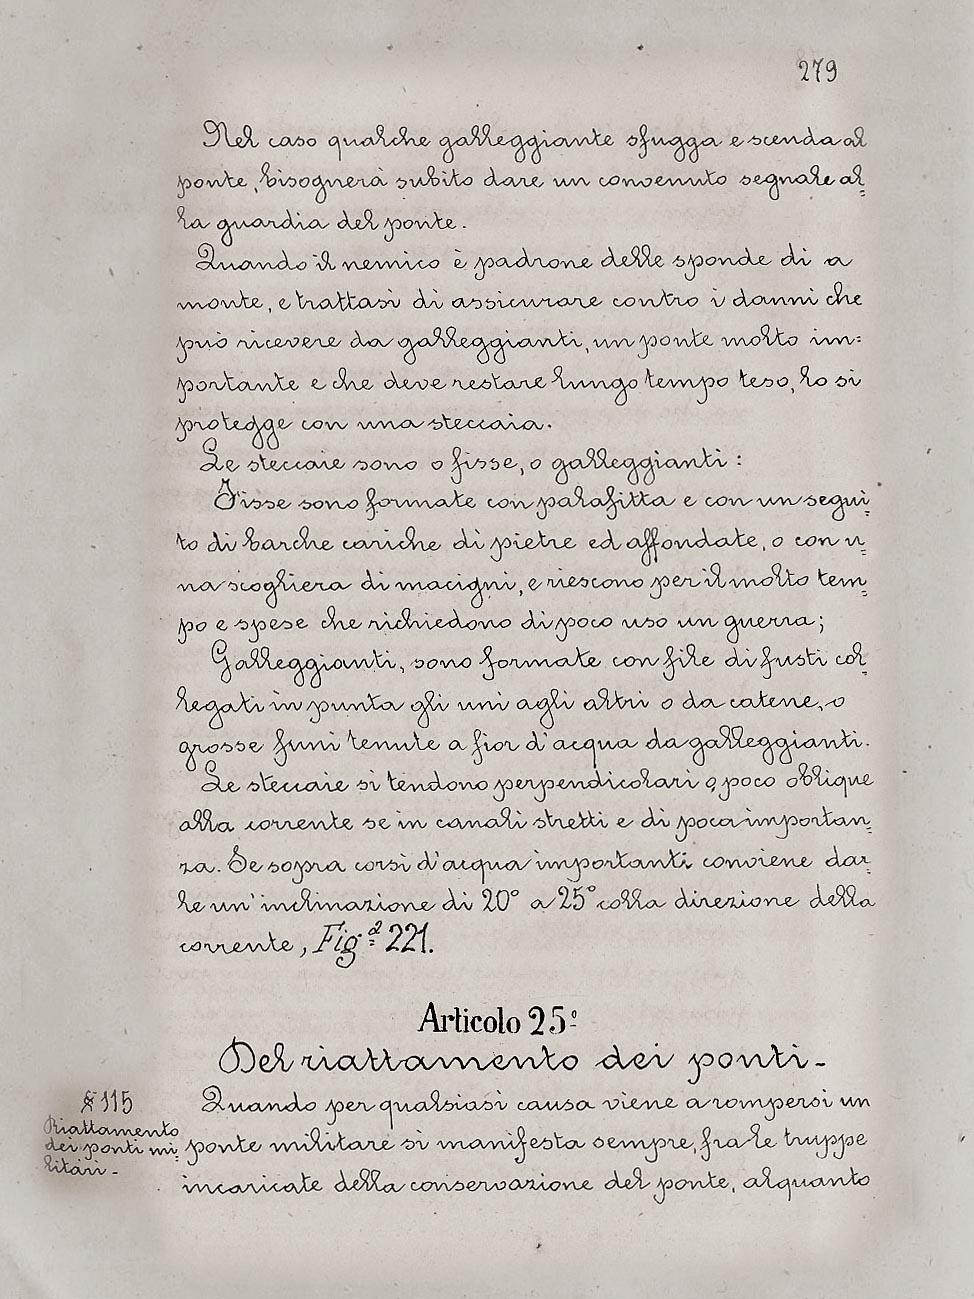 279
Nel caso qualche galleggiante sfugga e scenda al
ponte, bisognerà subito dare un convenuto segnale al=
la guardia del ponte.
Quando il nemico è padrone delle sponde di a
monte, e trattasi di assicurare contro i danni che
può ricevere da galleggianti, un ponte molto im=
portante e che deve restare lungo tempo teso, lo si
protegge con una steccaia.
Le steccaie sono o fisse, o galleggianti:
Fisse sono formate con palafitta e con un segui=
to di barche cariche di pietre ed affondate, o con u=
na scogliera di macigni, e riescono per il molto tem=
po e spese che richiedono di poco uso un guerra;
Galleggianti, sono formate con file di fusti col=
legati in punta gli uni agli altri o da catene, o
grosse funi tenute a fior d'acqua da galleggianti.
Le steccaie si tendono perpendicolari o poco oblique
alla corrente se in canali stretti e di poca importan=
za. Se sopra corsi d'acqua importanti conviene dar=
le un'inclinazione di 20° a 25° colla direzione della
corrente, Fig.ª 221.
Articolo 25°
Del riattamento dei ponti-
§ 115
Riattamento
dei ponti mi=
litari-
Quando per qualsiasi causa viene a rompersi un
ponte militare si manifesta sempre, fra le truppe
incaricate della conservazione del ponte, alquanto